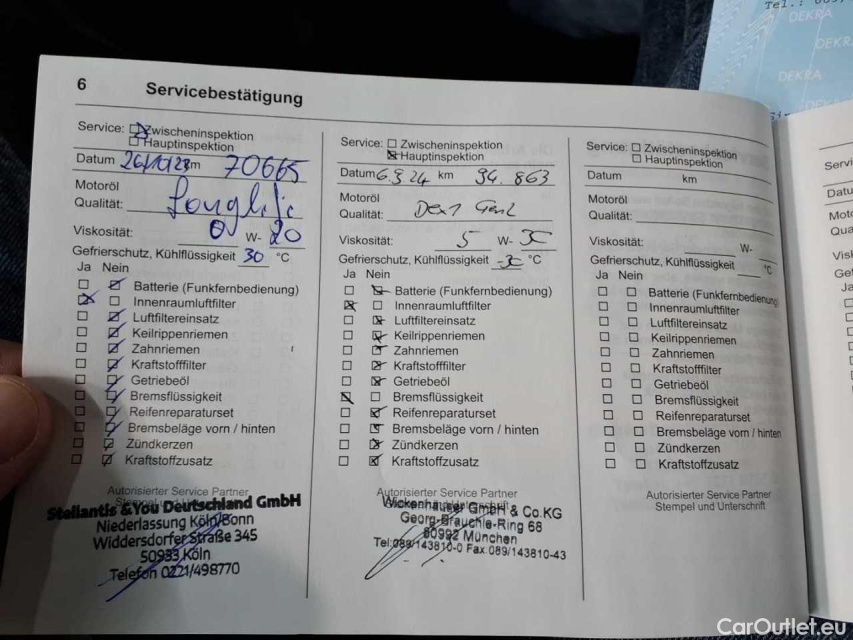 Tel.: 089/
DEKRA
DEKRA
DEKRA
6 Servicebestätigung
Service: Zwischeninspektion
Hauptinspektion
Datum 26/10/23 km 70665
Motoröl
Qualität: Longlife
Viskosität: 0 W- 20
Gefrierschutz, Kühlflüssigkeit 30 °C
Ja Nein
Batterie (Funkfernbedienung)
Innenraumluftfilter
Luftfiltereinsatz
Keilrippenriemen
Zahnriemen
Kraftstofffilter
Getriebeöl
Bremsflüssigkeit
Reifenreparaturset
Bremsbeläge vorn / hinten
Zündkerzen
Kraftstoffzusatz
Autorisierter Service Partner
Stempel und Unterschrift
Stellantis &You Deutschland GmbH
Niederlassung Köln/Bonn
Widdersdorfer Straße 345
50933 Köln
Telefon 0221/498770
Service: Zwischeninspektion
Hauptinspektion
Datum 6.9.24 km 94.863
Motoröl
Qualität: Dex1
Viskosität: 5 W- 30
Gefrierschutz, Kühlflüssigkeit -30 °C
Ja Nein
Batterie (Funkfernbedienung)
Innenraumluftfilter
Luftfiltereinsatz
Keilrippenriemen
Zahnriemen
Kraftstofffilter
Getriebeöl
Bremsflüssigkeit
Reifenreparaturset
Bremsbeläge vorn / hinten
Zündkerzen
Kraftstoffzusatz
Autorisierter Service Partner
Wickenhäuser GmbH & Co.KG
Georg-Brauchle-Ring 68
80992 München
Tel:089/143810-0 Fax:089/143810-43
Service: Zwischeninspektion
Hauptinspektion
Datum km
Motoröl
Qualität:
Viskosität: W-
Gefrierschutz, Kühlflüssigkeit °C
Ja Nein
Batterie (Funkfernbedienung
Innenraumluftfilter
Luftfiltereinsatz
Keilrippenriemen
Zahnriemen
Kraftstofffilter
Getriebeöl
Bremsflüssigkeit
Reifenreparaturset
Bremsbeläge vorn / hinten
Zündkerzen
Kraftstoffzusatz
Autorisierter Service Partner
Stempel und Unterschrift
CarOutlet.eu